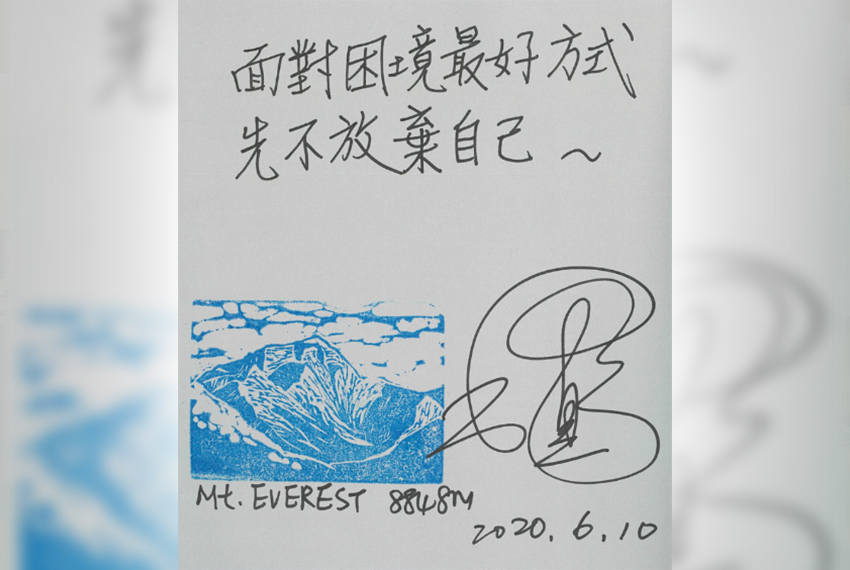 面對困境最好方式
先不放棄自己～
Mt. EVEREST 8848M
2020.6.10